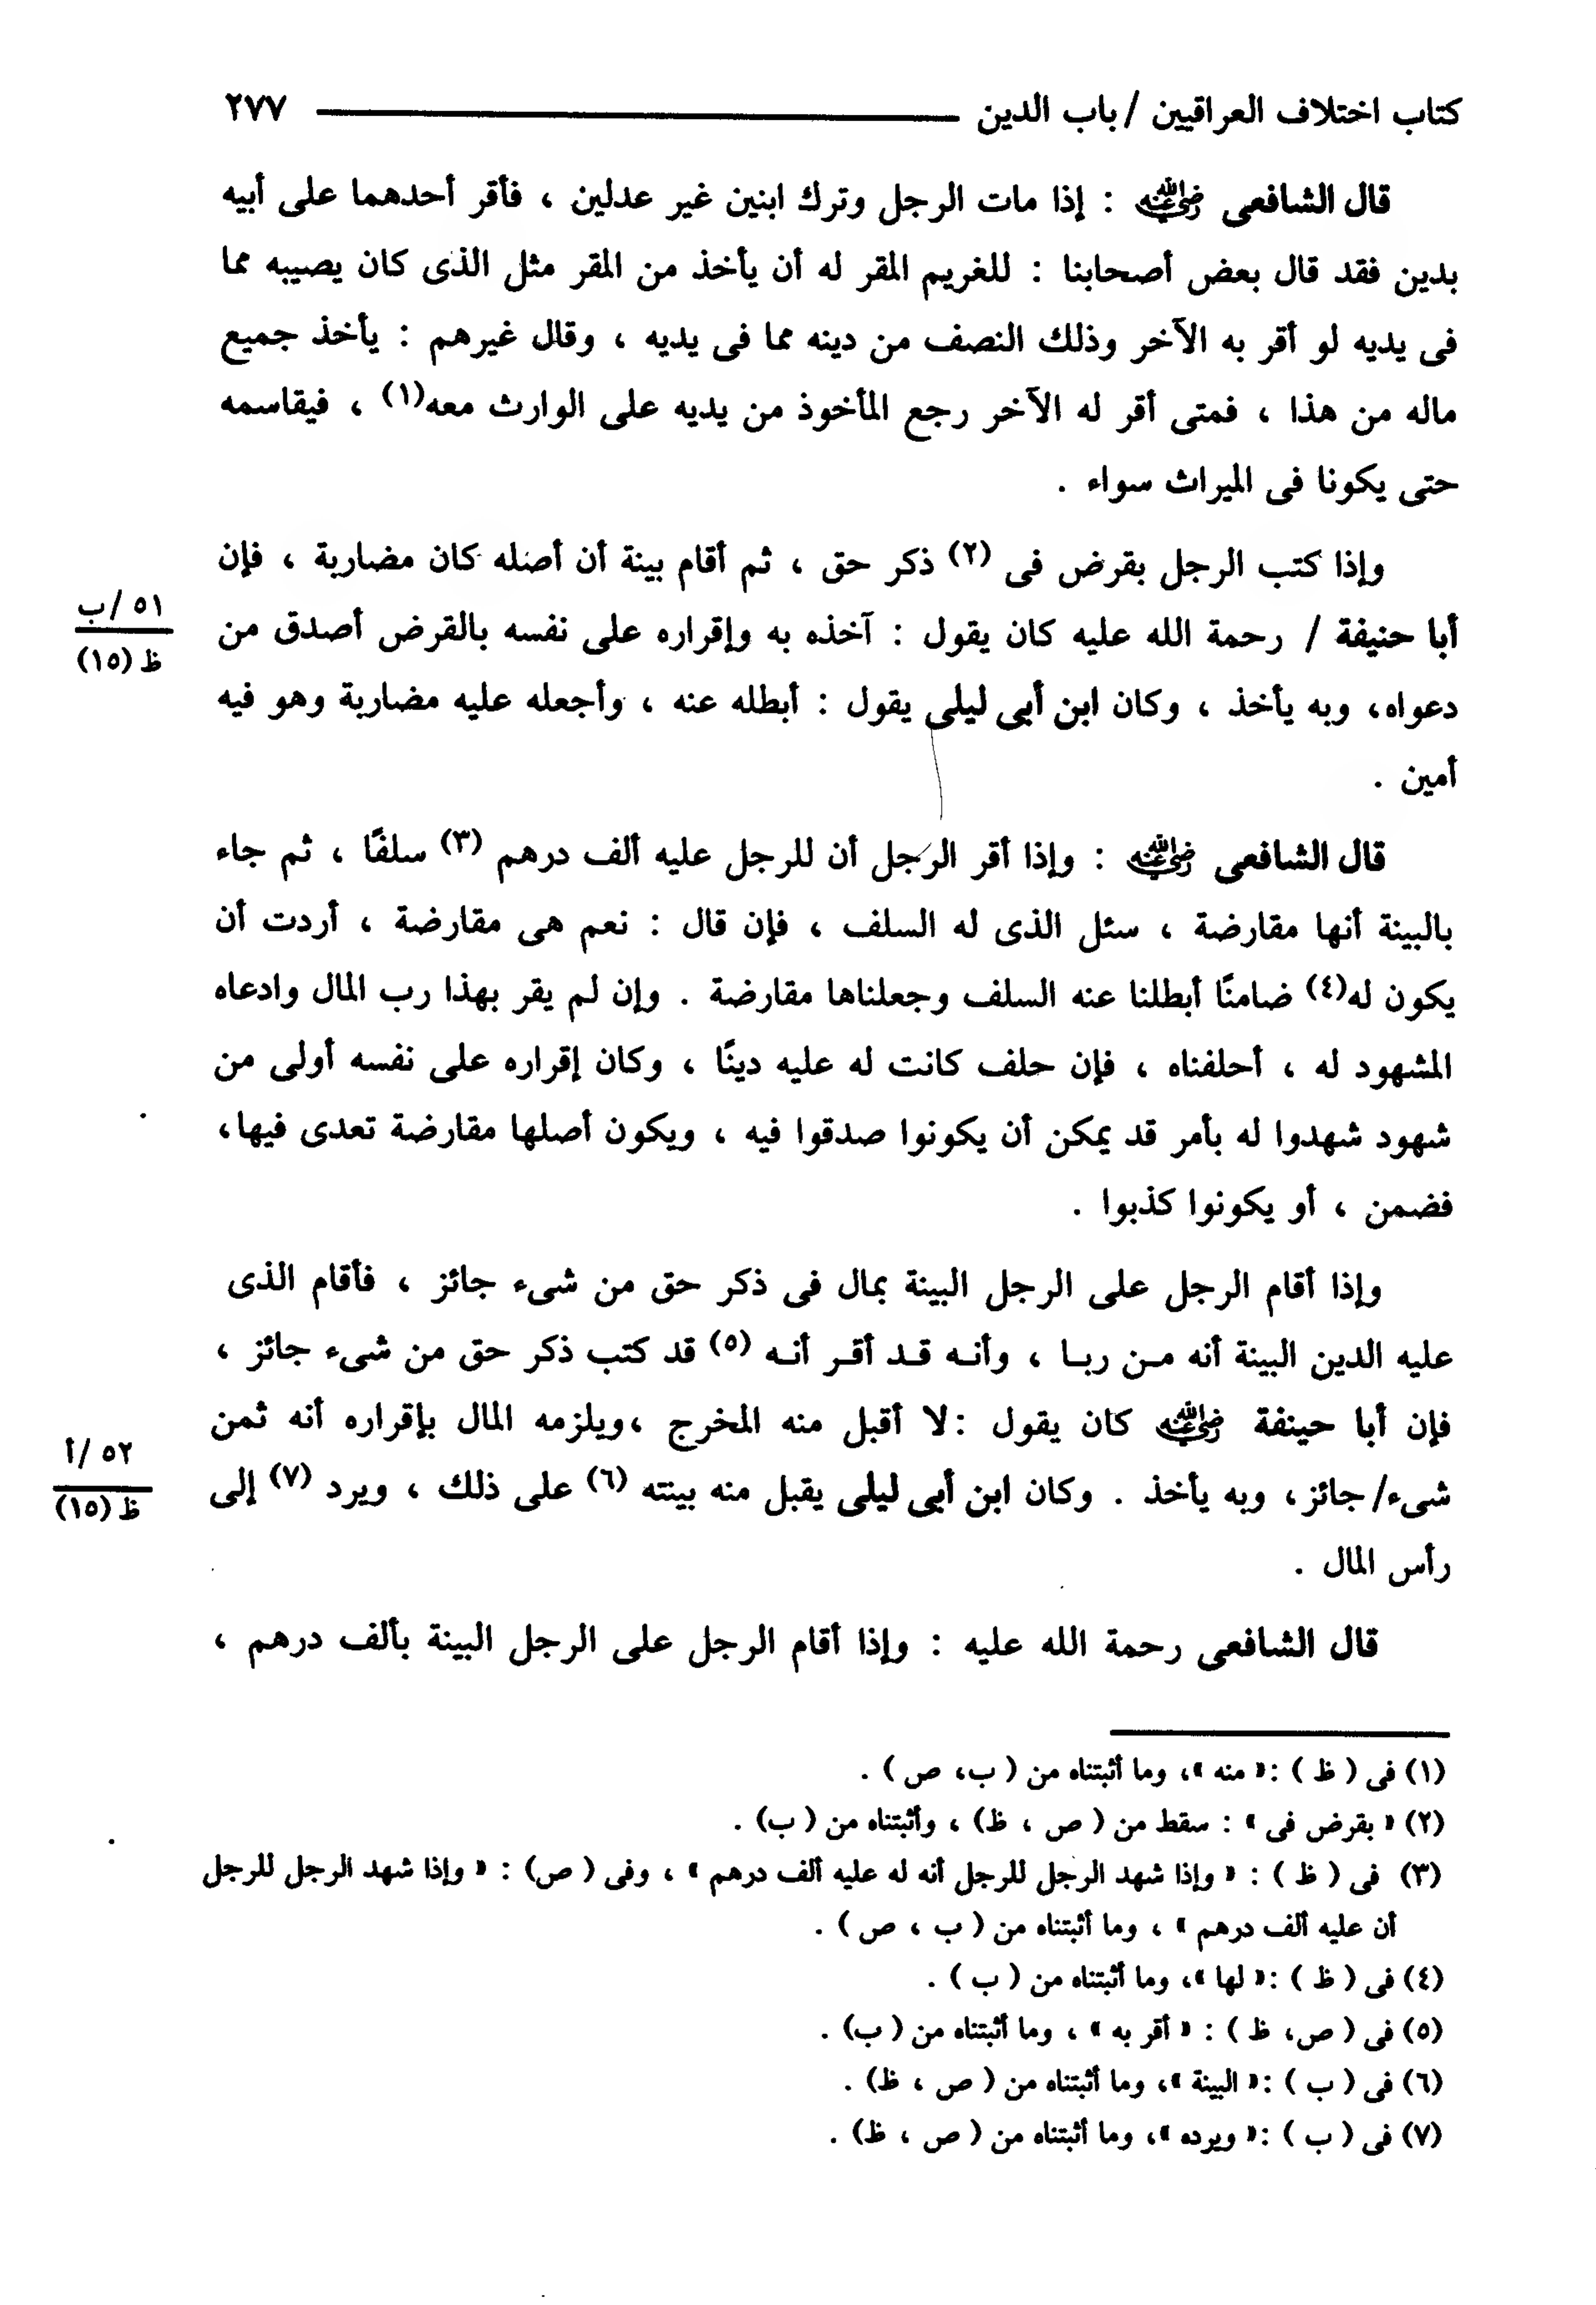 كتاب اختلاف العراقيين / باب الدين ٢٧٧
قال الشافعى رضي الله عنه : إذا مات الرجل وترك ابنين غير عدلين ، فأقر أحدهما على أبيه
بدين فقد قال بعض أصحابنا : للغريم المقر له أن يأخذ من المقر مثل الذى كان يصيبه مما
فى يديه لو أقر به الآخر وذلك النصف من دينه مما فى يديه ، وقال غيرهم : يأخذ جميع
ماله من هذا ، فمتى أقر له الآخر رجع المأخوذ من يديه على الوارث معه(١) ، فيقاسمه
حتى يكونا فى الميراث سواء .
وإذا كتب الرجل بقرض فى (٢) ذكر حق ، ثم أقام بينة أن أصله كان مضاربة ، فإن
أبا حنيفة / رحمة الله عليه كان يقول : آخذه به وإقراره على نفسه بالقرض أصدق من
٥١ /ب
ظ (١٥)
دعواه، وبه يأخذ ، وكان ابن أبى ليلى يقول : أبطله عنه ، وأجعله عليه مضاربة وهو فيه
أمين .
قال الشافعى رضي الله عنه : وإذا أقر الرجل أن للرجل عليه ألف درهم (٣) سلفًا ، ثم جاء
بالبينة أنها مقارضة ، سئل الذى له السلف ، فإن قال : نعم هى مقارضة ، أردت أن
يكون له(٤) ضامنًا أبطلنا عنه السلف وجعلناها مقارضة . وإن لم يقر بهذا رب المال وادعاه
المشهود له ، أحلفناه ، فإن حلف كانت له عليه دينًا ، وكان إقراره على نفسه أولى من
شهود شهدوا له بأمر قد يمكن أن يكونوا صدقوا فيه ، ويكون أصلها مقارضة تعدى فيها،
فضمن ، أو يكونوا كذبوا .
وإذا أقام الرجل على الرجل البينة بمال فى ذكر حق من شىء جائز ، فأقام الذى
عليه الدين البينة أنه من ربا ، وأنه قد أقر أنه (٥) قد كتب ذكر حق من شىء جائز ،
فإن أبا حينفة رضي الله عنه كان يقول :لا أقبل منه المخرج ،ويلزمه المال بإقراره أنه ثمن
٥٢ /أ
ظ (١٥)
شىء/جائز، وبه يأخذ . وكان ابن أبى ليلى يقبل منه بينته (٦) على ذلك ، ويرد (٧) إلى
رأس المال .
قال الشافعى رحمة الله عليه : وإذا أقام الرجل على الرجل البينة بألف درهم ،
(١) فى ( ظ ) :« منه »، وما أثبتناه من ( ب، ص ) .
(٢) « بقرض فى » : سقط من ( ص ، ظ) ، وأثبتناه من ( ب) .
(٣) فى ( ظ ) : « وإذا شهد الرجل للرجل أنه له عليه ألف درهم » ، وفى ( ص) : « وإذا شهد الرجل للرجل
أن عليه ألف درهم » ، وما أثبتناه من ( ب ، ص ) .
(٤) فى ( ظ ) :« لها »، وما أثبتناه من ( ب ) .
(٥) فى ( ص، ظ ) : « أقر به » ، وما أثبتناه من ( ب) .
(٦) فى ( ب ) :« البينة »، وما أثبتناه من ( ص ، ظ) .
(٧) فى ( ب ) :« ويرده »، وما أثبتناه من ( ص ، ظ) .